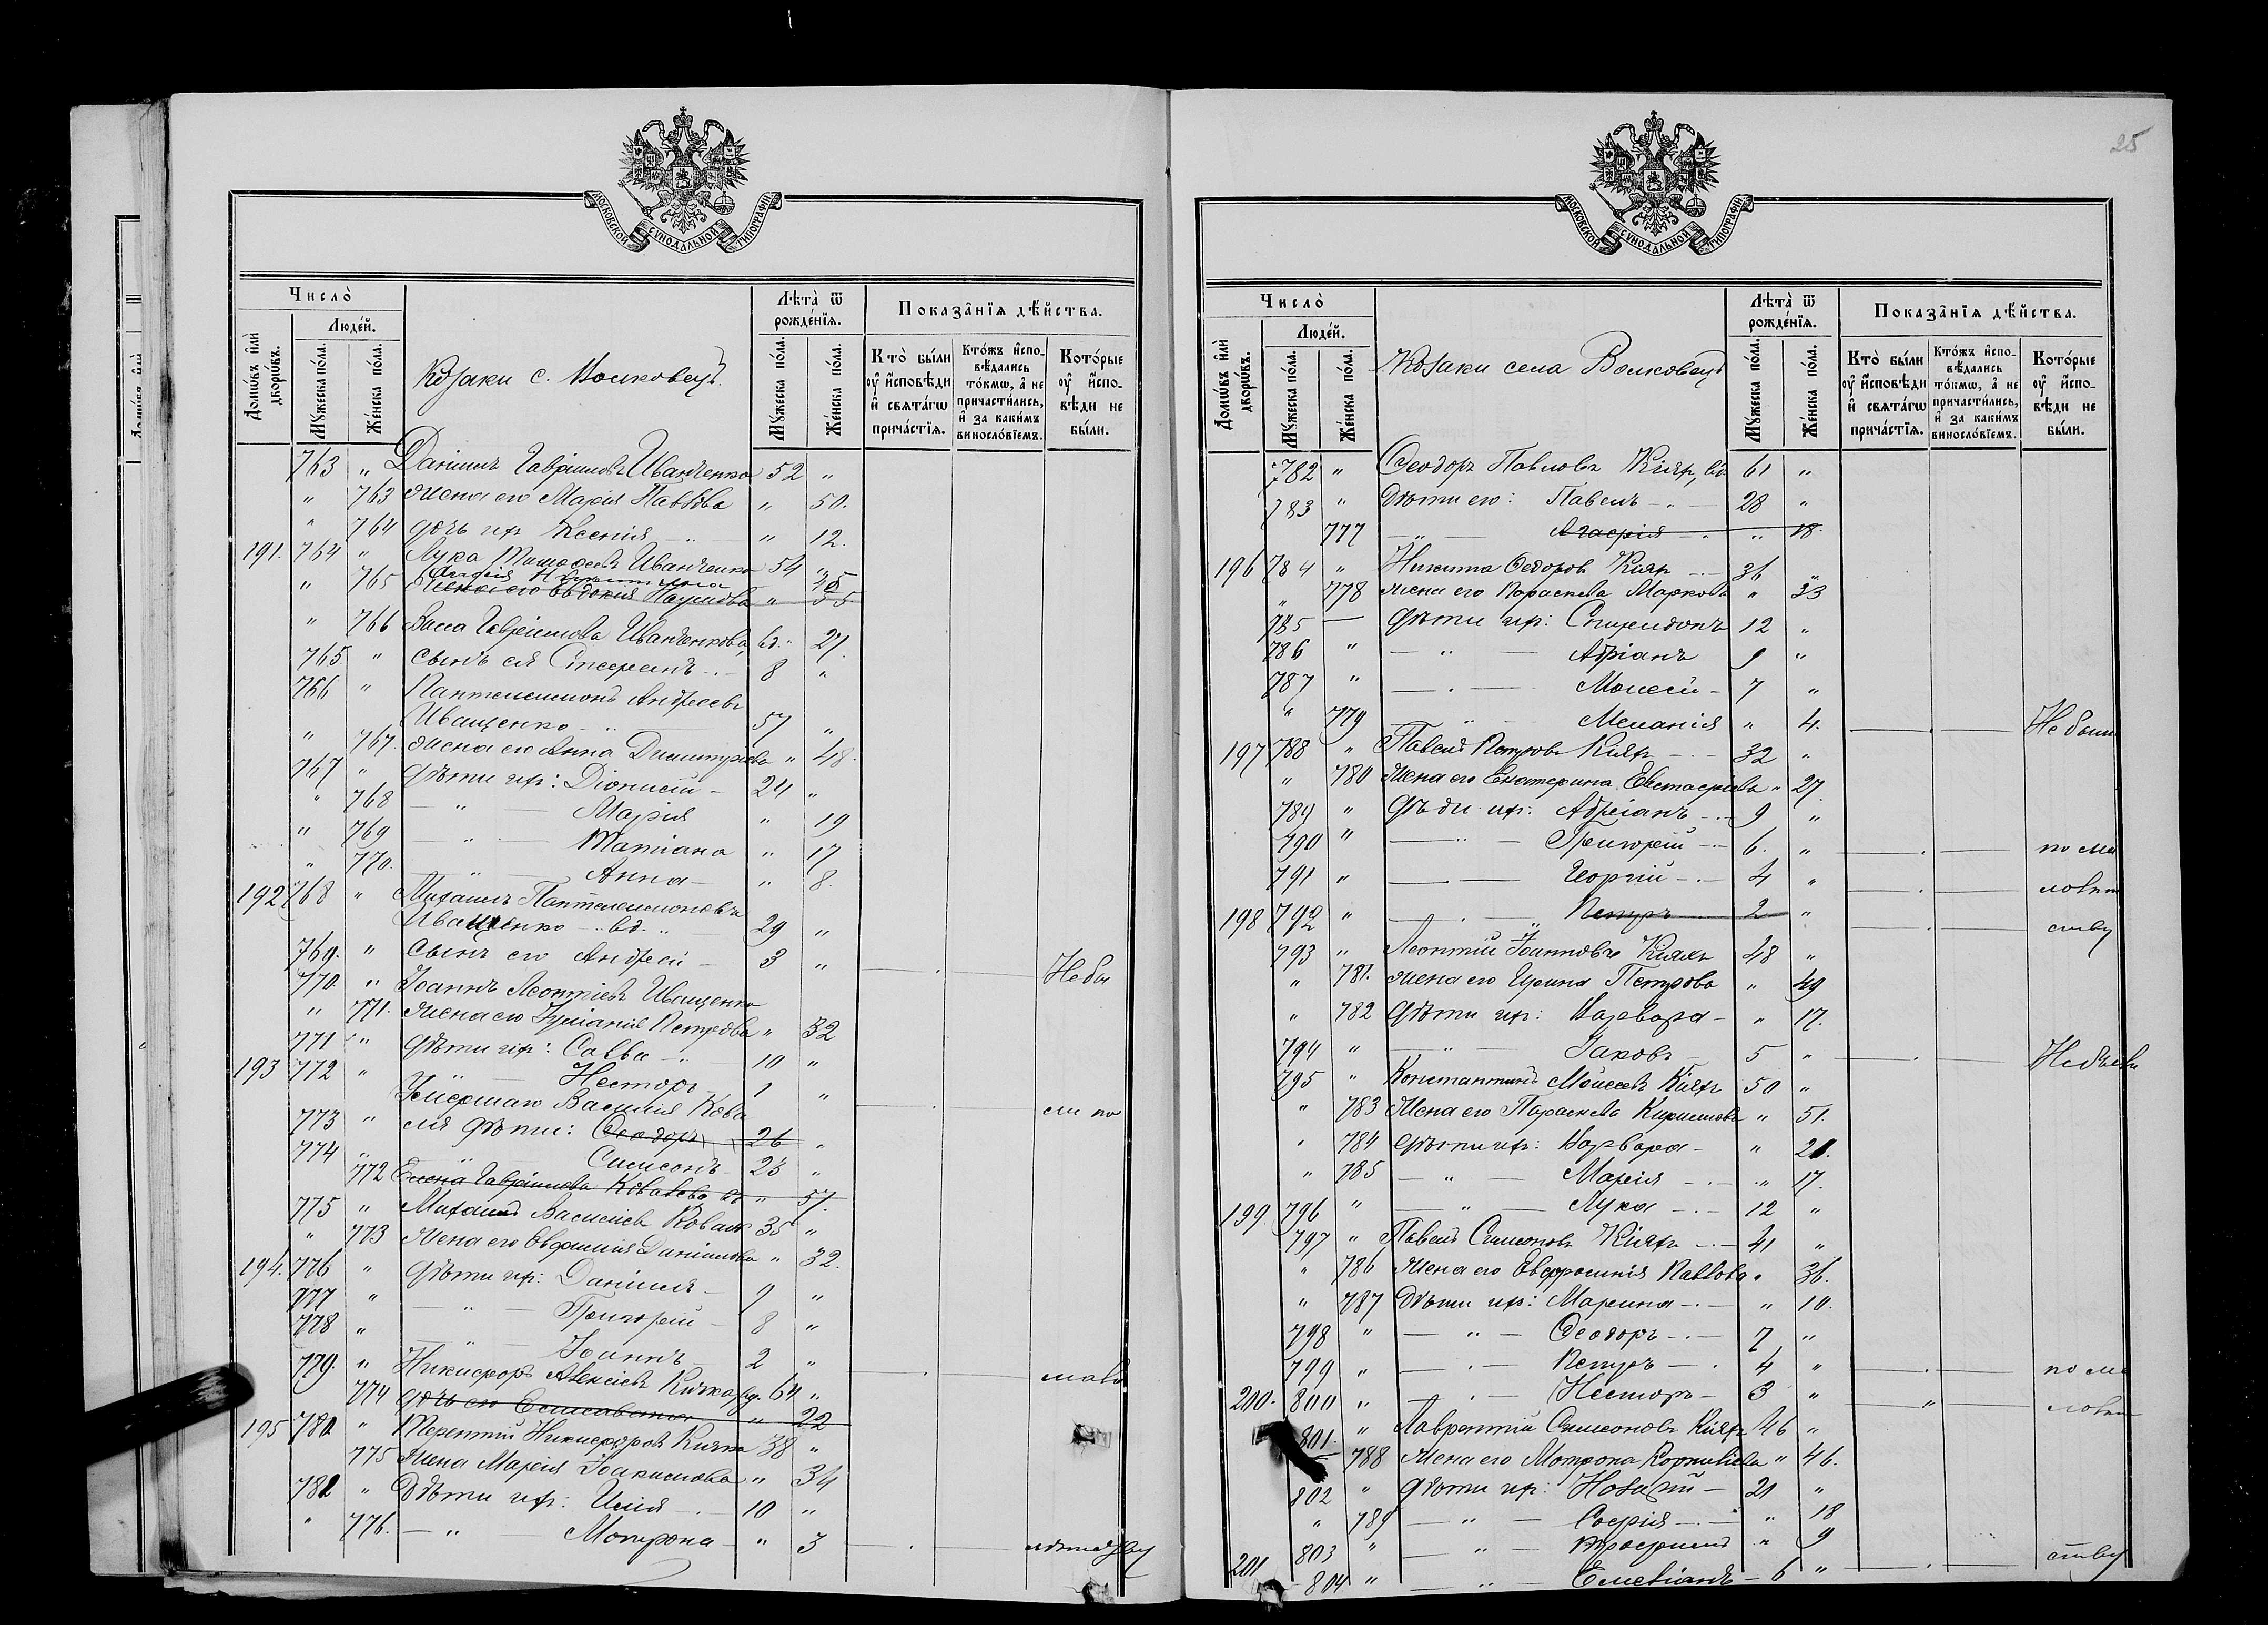 МОСКОВСКОЙ СѴНОДАЛЬНОЙ ТИПОГРАФІИ
Число
Людей.
Домѡвъ или дворѡвъ.
Мꙋжеска пола.
Женска пола.
Козаки с. Волковецъ.
Лѣта ѿ рожденїя.
Мꙋжеска пола.
Женска пола.
Показанїя дѣйства.
Кто были оу исповѣди и свѧтагѡ причастїя.
Ктожъ исповѣдались токмѡ, а не причастились, и за какимъ винословїемъ.
Которые оу исповѣди не были.
763 " Даніилъ Гавріиловъ Иванченко 52 "
" 763 Жена его Марія Павлова " 50.
" 764 дочь ихъ Ксенія " 12.
191. 764 " Лука Тимофеевъ Иванченко 54 "
Агафія Никитина 45
" 765 Жена его Евдокія Наумова " 55
" 766 Васса Гавріилова Иванченкова, вд. " 27.
765. " сынъ ея Стефанъ 8 "
766 " Пантелеимонъ Андреевъ
Иващенко 57 "
" 767. Жена его Анна Димитріева " 48.
767 " Дѣти ихъ: Діонисій 24 "
" 768 — " — Марія " 19
" 769 — " — Татіана " 17
" 770. — " — Анна " 8.
192 768 " Михаилъ Пантелеимоновъ
Иващенко вд. 29 "
769. " Сынъ его Андрей 3 " Небы
770. " Іоаннъ Леонтіевъ Иващенко
" 771. Жена его Іуліанія Петрова " 32
771 " Дѣти ихъ: Савва 10 "
193 772 " — Несторъ 1 " ли по
Умершаго Василія Кова
773 " ля дѣти: Феодоръ 26 "
774 " Симеонъ 23 "
772 Елена Гавріилова Ковалева вд " 57.
775 " Михаилъ Василіевъ Коваль 35 "
" 773 Жена его Евфимія Даніилова " 32.
194. 776 " Дѣти ихъ: Даніилъ 9 "
777 " — " — Григорій 8 "
778 " — " — Іоаннъ 2 " малѣ
779. " Никифоръ Алексіевъ Кияхъ, вд. 64 "
774 дочь его Елисавета " 22
195 780 " Терентій Никифоровъ Кияхъ 38 "
775 Жена Марія Іоакимова " 34
781 " Дѣти ихъ: Илія 10 "
" 776. — " — Матрона " 3 лѣтству
25
МОСКОВСКОЙ СѴНОДАЛЬНОЙ ТИПОГРАФІИ
Число
Людей.
Домѡвъ или дворѡвъ.
Мꙋжеска пола.
Женска пола.
Козаки села Волковецъ
Лѣта ѿ рожденїя.
Мꙋжеска пола.
Женска пола.
Показанїя дѣйства.
Кто были оу исповѣди и свѧтагѡ причастїя.
Ктожъ исповѣдались токмѡ, а не причастились, и за какимъ винословїемъ.
Которые оу исповѣди не были.
782 " Феодоръ Павловъ Кіяхъ, вд. 61 "
783 " Дѣти его: Павелъ 28 "
777 — " — Агафія " 18.
196 784 " Никита Федоровъ Кіяхъ 36 "
" 778 Жена его Параскева Маркова " 33
785 — Дѣти ихъ: Спиридонъ 12 "
786 " — " — Адріанъ 9 "
787 " — " — Моисей 7 "
" 779 — " — Меланія " 4. Небыли
197 788 " Павелъ Петровъ Кіяхъ 32 "
" 780 Жена его Екатерина Евстафіева " 27.
789 " Дѣти ихъ: Адріанъ 9 "
790 " — " — Григорій 6. " по ма
791 " — Георгій 4 " ловѣт
198 792 " — " — Петръ 2 " ству
793 " Леонтій Іоанновъ Кіяхъ 48 "
" 781. Жена его Ирина Петрова " 49
" 782 Дѣти ихъ: Варвара " 17.
794 " — " — Іаковъ 5 " Небыли
795 " Константинъ Моисеевъ Кіяхъ 50 "
" 783 Жена его Параскева Кириллова " 51.
" 784 Дѣти ихъ: Варвара " 21.
" 785 — " — Марія " 17.
199 796 " — " — Лука 12 "
797 " Павелъ Симеоновъ Кіяхъ 41 "
" 786 Жена его Евфросинія Павлова " 36.
" 787 Дѣти ихъ: Марина " 10.
798 " — " — Феодоръ 7 "
799 " — " — Петръ 4 " по ма
200. 800 " — " — Несторъ 3 " ловѣт
801. " Лаврентій Симеоновъ Кіяхъ 46 "
788 Жена его Матрона Корниліева " 46.
802 " Дѣти ихъ: 21 "
" 789 — " — Софія " 18
803 " — " — Трофимъ " 9
201 804 " — " — Емеліанъ 6 " ству